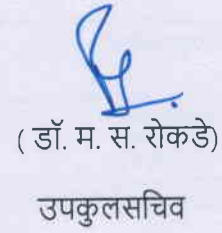 ( डॉ. म. स. रोकडे)
उपकुलसचिव